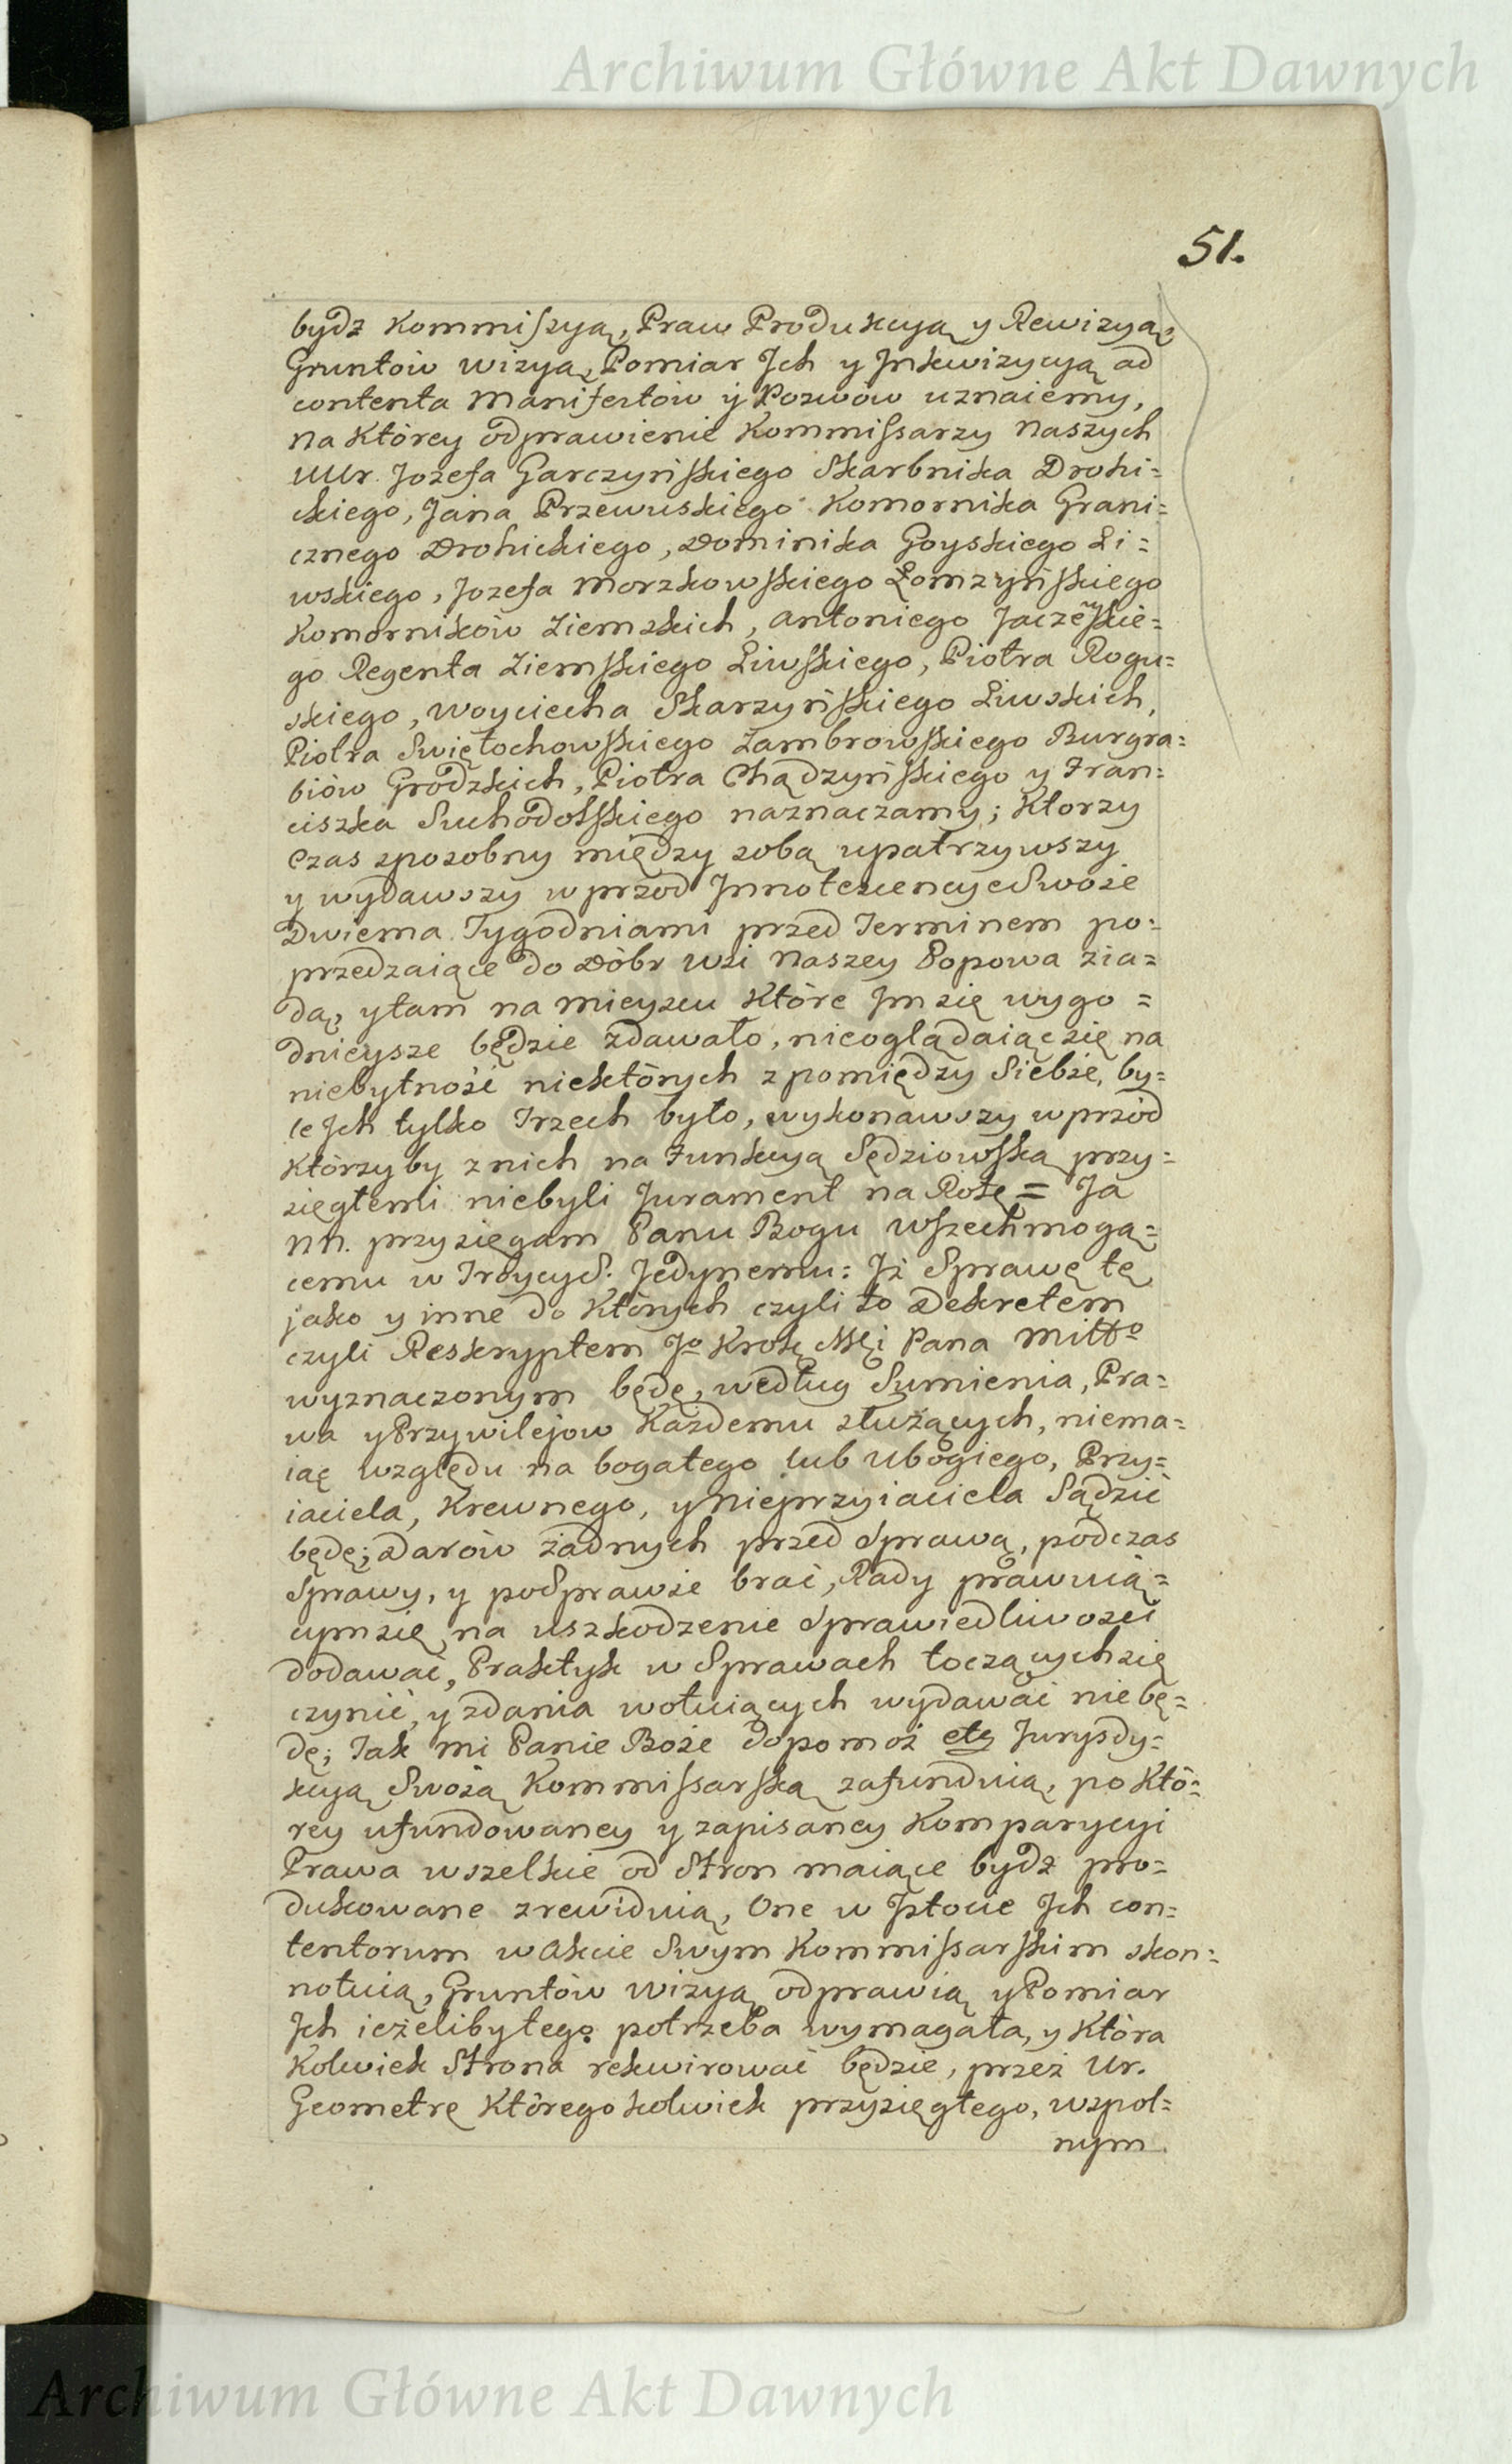 Archiwum Główne Akt Dawnych
51.
bydz Kommiſzyą, Praw Produkcyą y Rewizyą,
Gruntów wizyą, Pomiar Jch y Jnkwizycyą ad
contenta Manifestów ÿ Pozwów uznaiemy,
na którey odprawienie Kommiſsarzy Naszych
UUr. Jozefa Garczyńſkiego Skarbnika Drohi=
ckiego, Jana Przewuskiego Komornika Grani=
cznego Drohickiego, Dominika Goyskiego Li=
wskiego, Jozefa Morzkowſkiego Łomzyńſkiego
Komorników Ziemskich, Antoniego Jaczewſkie=
go Regenta Ziemſkiego Liwſkiego, Piotra Rogu=
skiego, Woyciecha Skarzyńſkiego Liwskich,
Piotra Swiętochowſkiego Zambrowſkiego Burgra=
biów Grodzkich, Piotra Chądzyńſkiego y Fran=
ciszka Suchodolſkiego naznaczamy; Ktorzy
Czas sposobny między sobą upatrzywszy
y wydawszy wprzod Jnnotescencye Swoie
Dwiema Tygodniami przed Terminem po=
przedzaiące do Dóbr wsi Naszey Popowa zia=
dą, y tam na mieyscu Które Jm się wygo=
dnieysze będzie zdawało, nieoglądaiąc się na
niebytność niektórych z pomiędzy Siebie, by=
le Jch tylko Trzech było, wykonawszy wprzód
Którzyby z nich na Funkcyą Sędziowſką przy=
sięgłemi niebyli Jurament na Rotę = Ja
NN. przysięgam Panu Bogu Wſzechmogą=
cemu w Troycy S. Jedynemu: Jż Sprawę tę
jako y inne do Których czyli to Dekretem
czyli Reskryptem Jº Krolę Mści Pana Miłttº
wyznaczonym będę, według Sumienia, Pra=
wa y Przywilejow Kazdemu służących, niema=
iąc względu na bogatego lub Ubogiego, Przy=
iaciela, Krewnego, y Nieprzyiaciela Sądzić
będę; Darów żadnych przed Sprawą, podczas
Sprawy, y po Sprawie brać, Rady prawuią=
cym się na uszkodzenie Sprawiedliwości
dodawać, Praktyk w Sprawach toczących się
czynić, y zdania wotuiących wydawać niebę=
dę; Tak mi Panie Boże dopomoż etc Jurysdy=
kcyą Swoią Kommiſsarſką zafunduią, po Któ=
rey ufundowaney y zapisaney Komparycyi
Prawa wszelkie od Stron maiące bydz pro=
dukowane zrewiduią, One w Jstocie Jch con=
tentorum w Akcie Swym Kommiſsarſkim skon=
notuią, Gruntów wizyą odprawią y Pomiar
Jch ieżeliby tego potrzeba wymagała, y Która
Kolwiek Strona rekwirować będzie, przez Ur.
Geometrę Któregokolwiek przysięgłego, wspol=
nym
Archiwum Główne Akt Dawnych